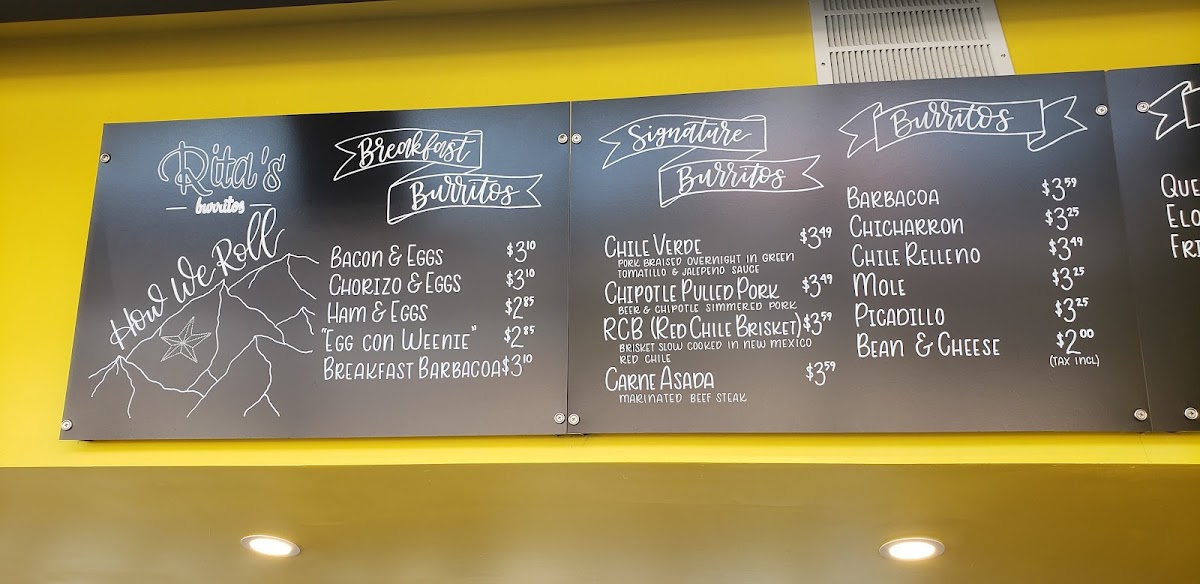 Rita's
burritos
How We Roll
Breakfast
Burritos
Bacon & Eggs $3.10
Chorizo & Eggs $3.10
Ham & Eggs $2.85
"Egg con Weenie" $2.85
Breakfast Barbacoa $3.10
Signature
Burritos
Chile Verde $3.49
Pork braised overnight in green
tomatillo & jalepeno sauce
Chipotle Pulled Pork $3.49
Beer & chipotle simmered pork
RCB (Red Chile Brisket) $3.59
Brisket slow cooked in New Mexico
red chile
Carne Asada $3.59
Marinated beef steak
Burritos
Barbacoa $3.59
Chicharron $3.25
Chile Relleno $3.49
Mole $3.25
Picadillo $3.25
Bean & Cheese $2.00
(tax incl)